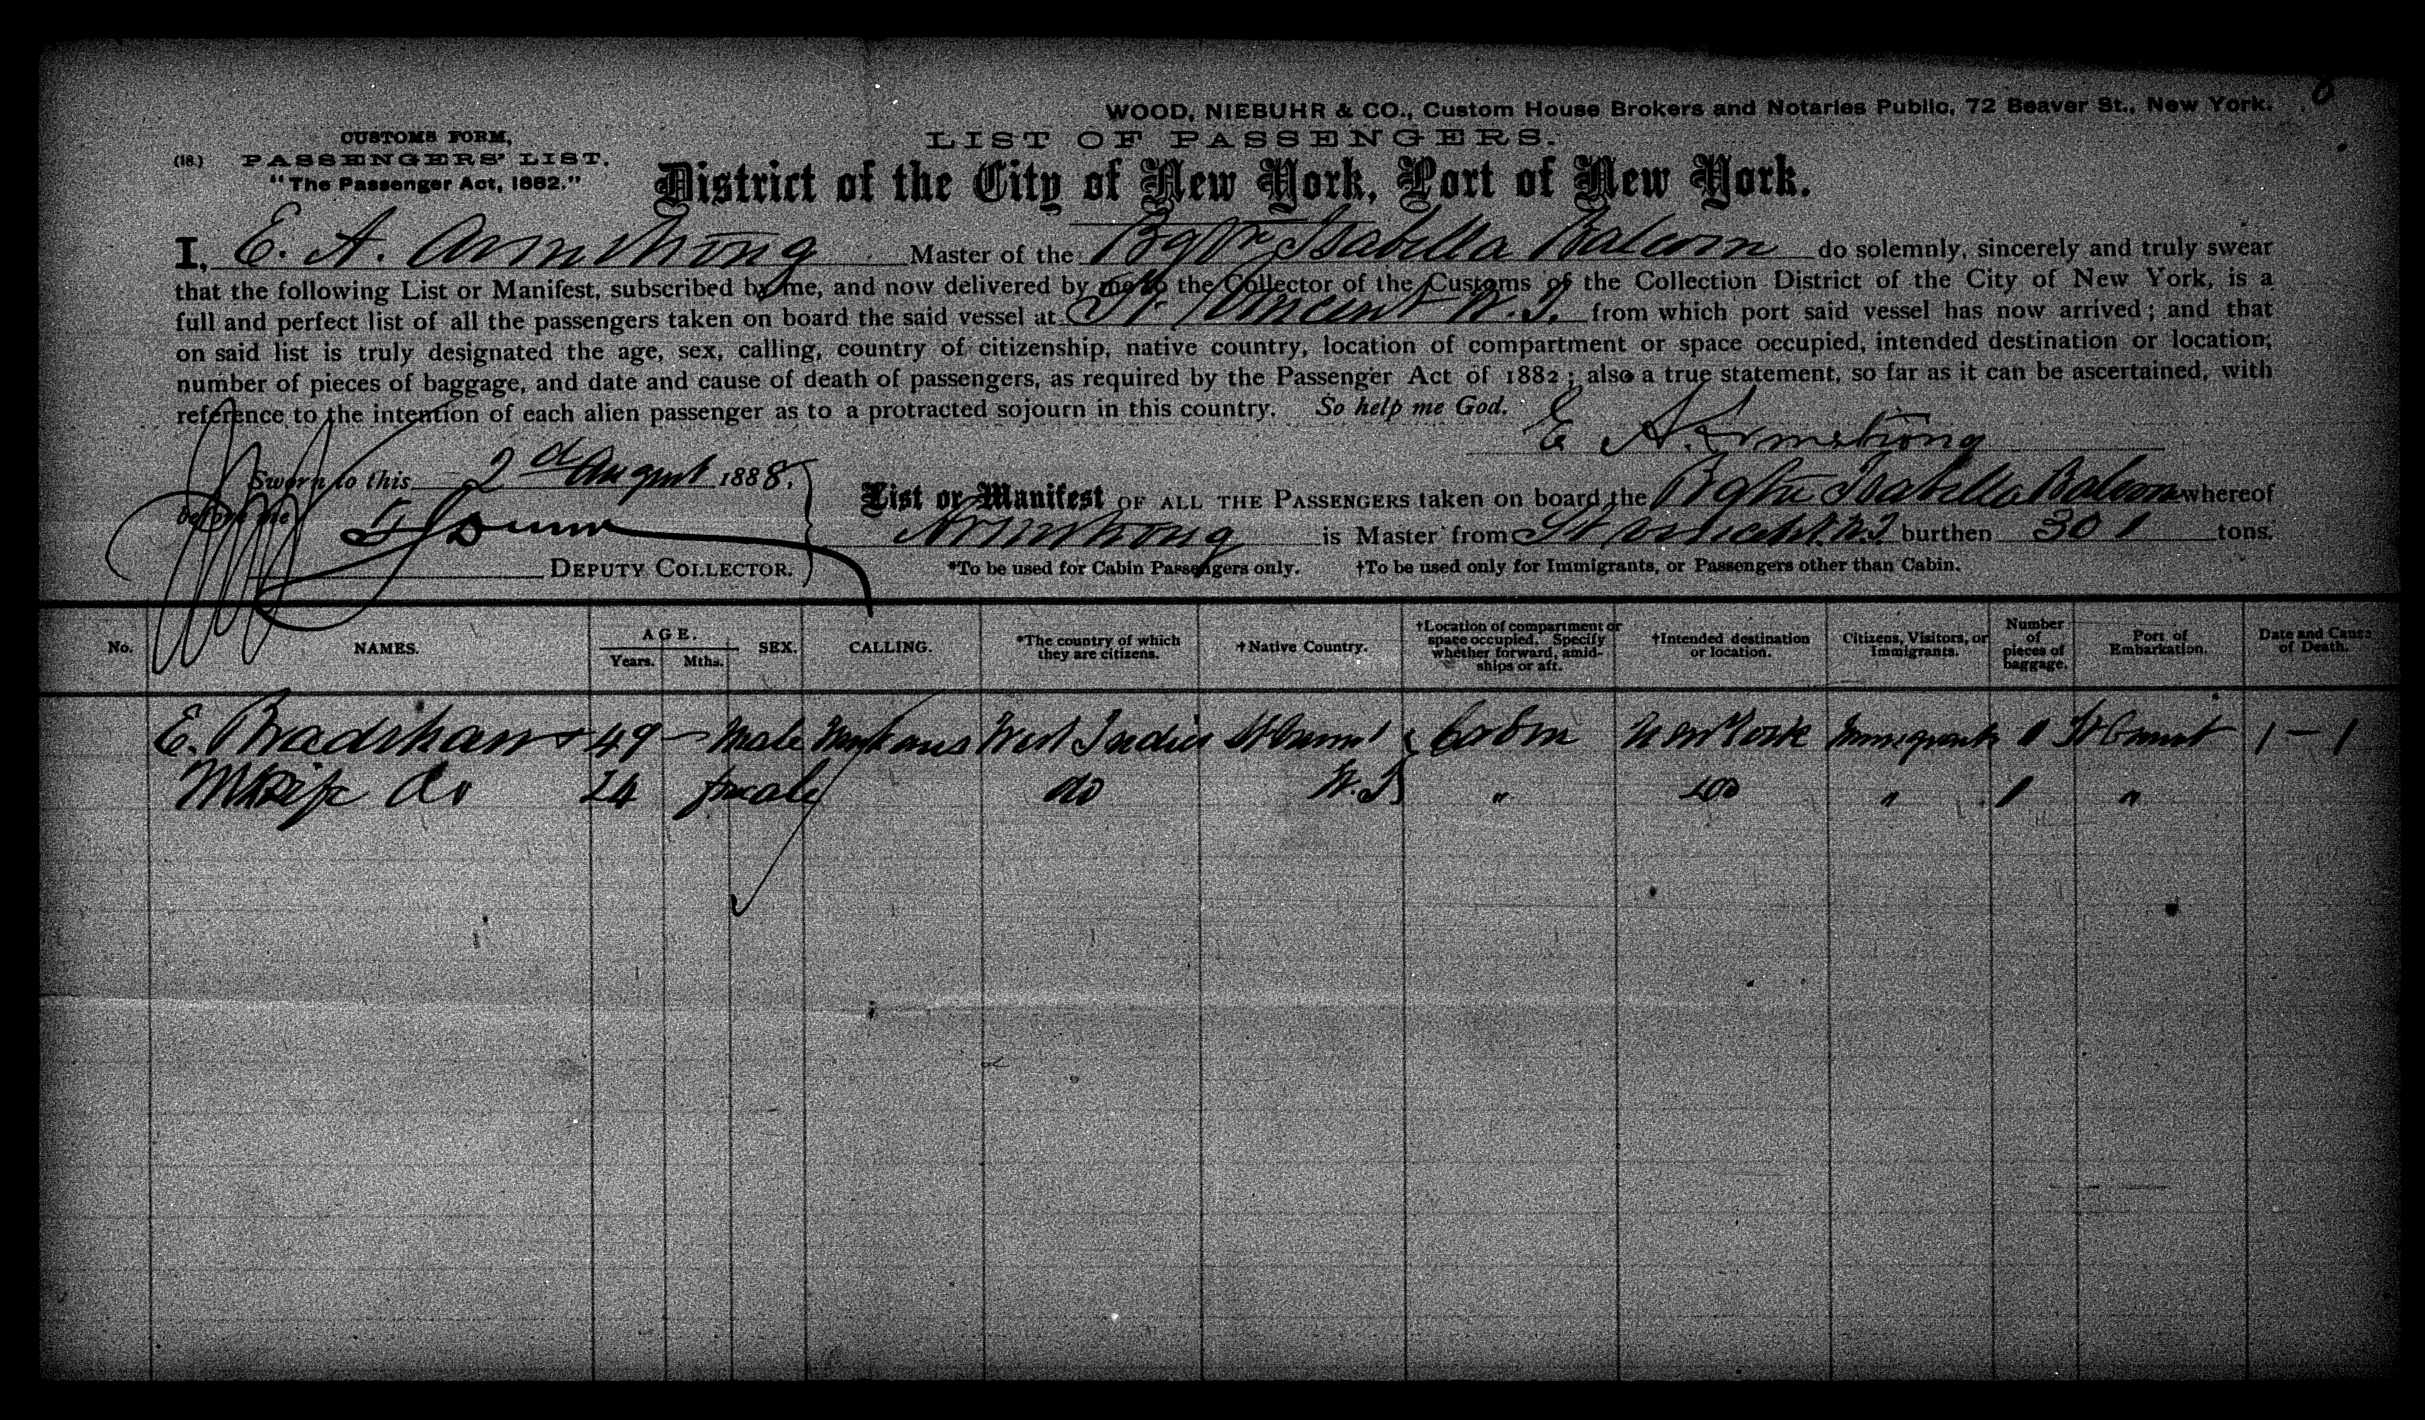 WOOD, NIEBUHR & CO., Custom House Brokers and Notaries Public, 72 Beaver St., New York.
CUSTOMS FORM,
LIST OF PASSENGERS.
(18.) PASSENGERS' LIST.
"The Passenger Act, 1882."
District of the City of New York, Port of New York.
I, E. A. Armstrong Master of the Bgtn Isabella Balcom do solemnly, sincerely and truly swear
that the following List or Manifest, subscribed by me, and now delivered by me to the Collector of the Customs of the Collection District of the City of New York, is a
full and perfect list of all the passengers taken on board the said vessel at St. Vincent W.I. from which port said vessel has now arrived; and that
on said list is truly designated the age, sex, calling, country of citizenship, native country, location of compartment or space occupied, intended destination or location;
number of pieces of baggage, and date and cause of death of passengers, as required by the Passenger Act of 1882; also a true statement, so far as it can be ascertained, with
reference to the intention of each alien passenger as to a protracted sojourn in this country. So help me God.
E A. Armstrong
Sworn to this 2d August 1888.
List or Manifest OF ALL THE PASSENGERS taken on board the Bgtn Isabella Balcom whereof
before me
Armstrong is Master from St Vincent W.I. burthen 301 tons.
DEPUTY COLLECTOR.
*To be used for Cabin Passengers only. †To be used only for Immigrants, or Passengers other than Cabin.
No. NAMES. AGE. Years. Mths. SEX. CALLING. *The country of which they are citizens. †Native Country. †Location of compartment or space occupied. Specify whether forward, amidships or aft. †Intended destination or location. Citizens, Visitors, or Immigrants. Number of pieces of baggage. Port of Embarkation. Date and Cause of Death.
E. Bradshaw 49 — Male West Indies St Vincent Cabin New York Immigrants 1 St Vincent 1 — 1
Wife Do 24 female do W. I " do " 1 "